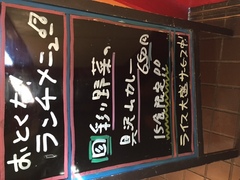 おとくな
ランチメニュー
日 彩り野菜の
具沢山カレー
650円
15食限定!!
ライス大盛サービス中!